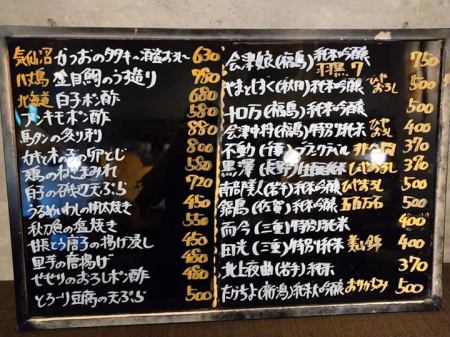 気仙沼 かつおのタタキ〜酒盗おろし〜 630
八丈島 金目鯛のうす造り 780
北海道 白子ポン酢 680
アンキモポン酢 580
馬タンの炙り刺 880
800
鶏のねぎまみれ 580
の磯辺天ぷら 720
うるめいわしの明太焼き 450
秋刀魚の塩焼き 550
甘長とう唐子の揚げ浸し 450
里芋の唐揚げ 480
せせりのおろしポン酢 450
とろーり豆腐の天ぷら 500
会津娘(福島)純米吟醸 羽黒 750
やまとしずく(秋田)純米吟醸 ひやおろし 500
十ロ万(福島)純米吟醸 500
会津中将(福島)特別純米 ひやおろし 400
不動(千葉) 非公開 370
黒澤(長野) ひやおろし 370
南部美人(岩手)純米吟醸 500
鍋島(佐賀)純米吟醸 五百万石 500
而今(三重)特別純米 400
田光(三重)特別純米 美山錦 400
北上夜曲(岩手)純米 370
たかちよ(新潟)純米吟醸 おりがらみ 500